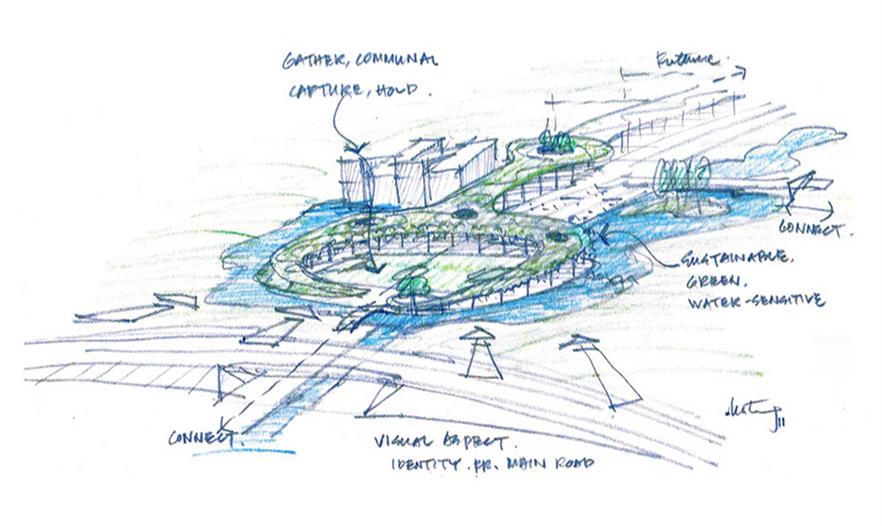 GATHER, COMMUNAL
CAPTURE, HOLD.
Future.
CONNECT.
SUSTAINABLE,
GREEN,
WATER-SENSITIVE
CONNECT.
VISUAL ASPECT.
IDENTITY. FR. MAIN ROAD